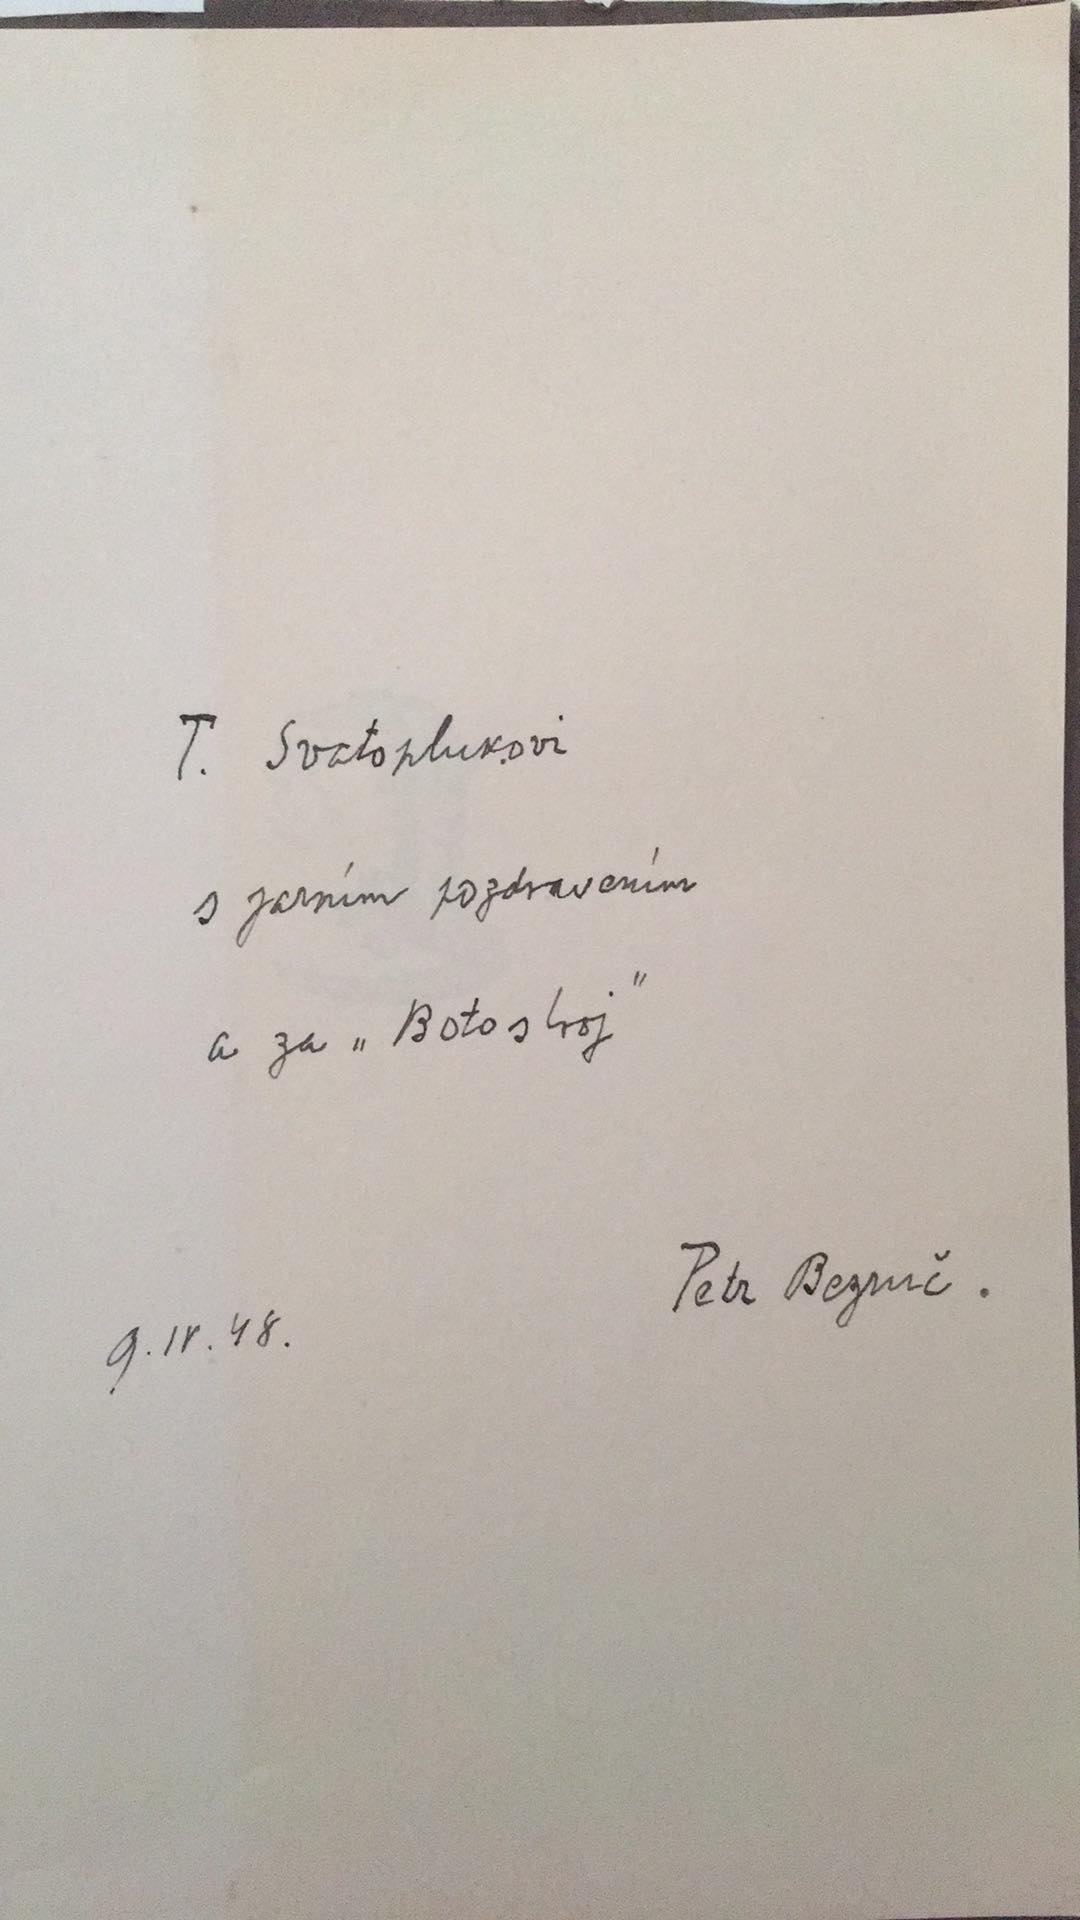 T. Svatoplukovi
s jarním pozdravením
a za „Botostroj"
Petr Bezruč.
9. IV. 48.